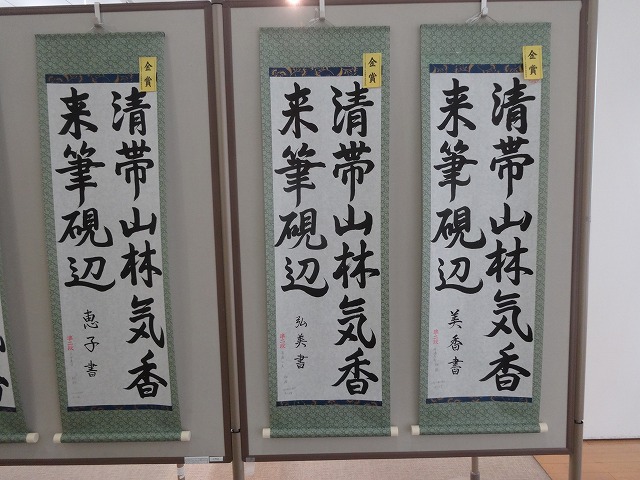 金賞
清帯山林気香
来筆硯辺
美香書
金賞
清帯山林気香
来筆硯辺
弘美書
金賞
清帯山林気香
来筆硯辺
恵子書